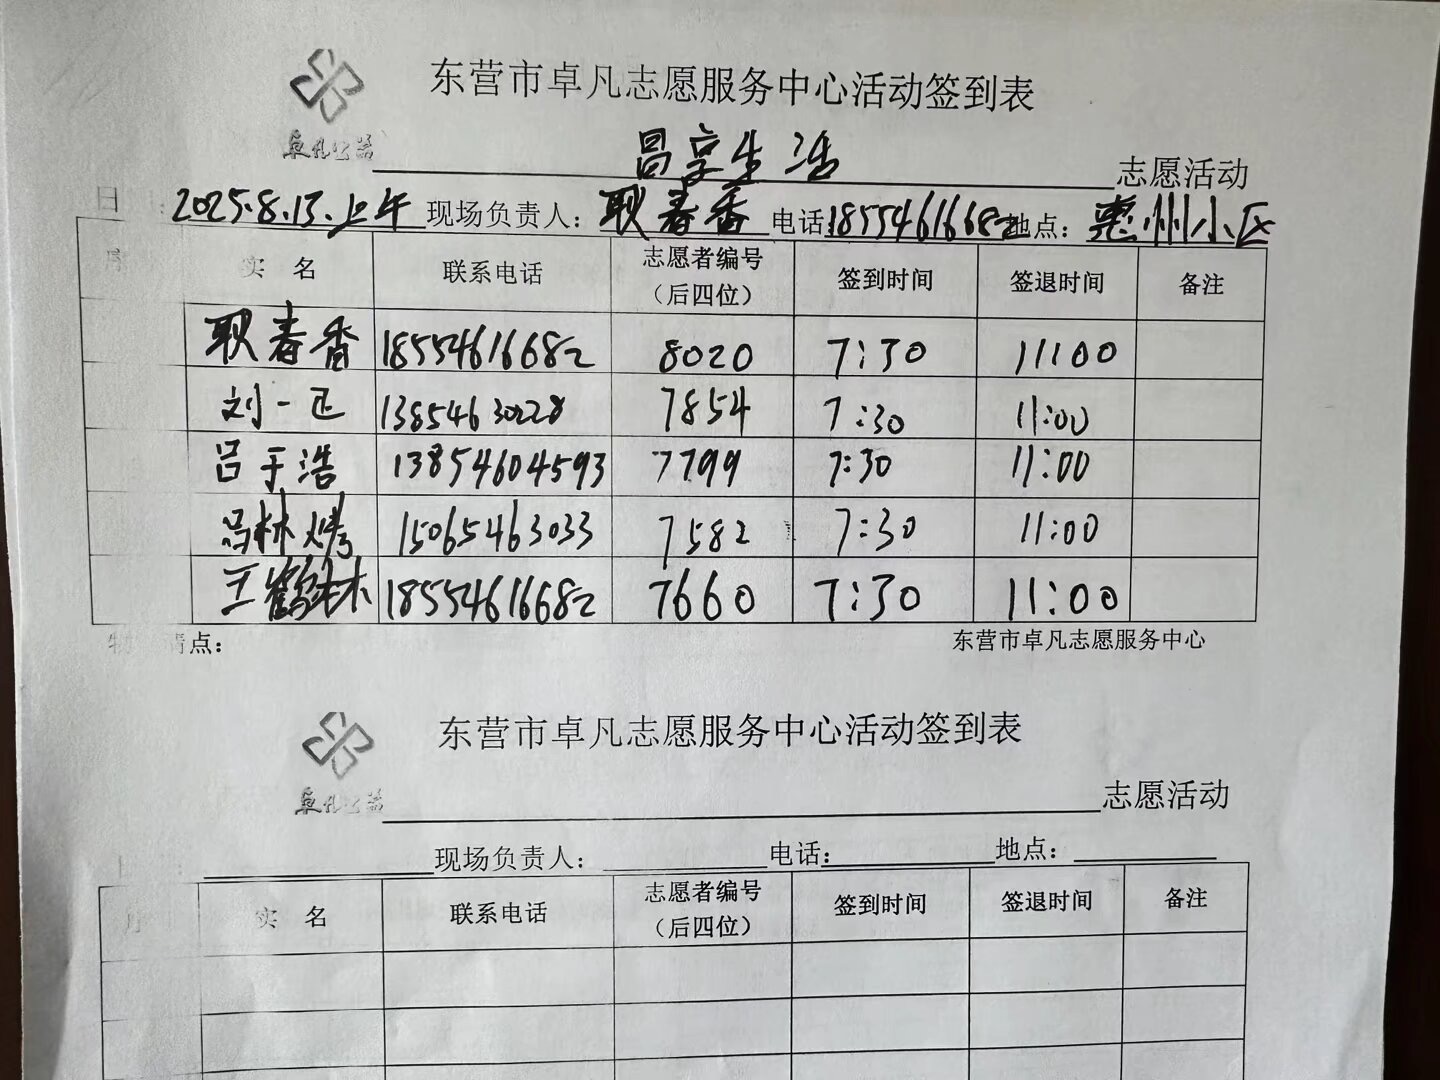 东营市卓凡志愿服务中心活动签到表
卓凡公益
昌享生活 志愿活动
日 : 2025.8.13.上午 现场负责人: 耿春香 电话 18554616682 地点: 惠州小区
序 实 名 联系电话 志愿者编号（后四位） 签到时间 签退时间 备注
耿春香 18554616682 8020 7:30 11:00
刘一正 13854630228 7854 7:30 11:00
吕于浩 13854604593 7799 7:30 11:00
林 15065463033 7582 7:30 11:00
王鹤林 18554616682 7660 7:30 11:00
物 清点: 东营市卓凡志愿服务中心
东营市卓凡志愿服务中心活动签到表
卓凡公益
志愿活动
日 : 现场负责人: 电话: 地点:
序 实 名 联系电话 志愿者编号（后四位） 签到时间 签退时间 备注